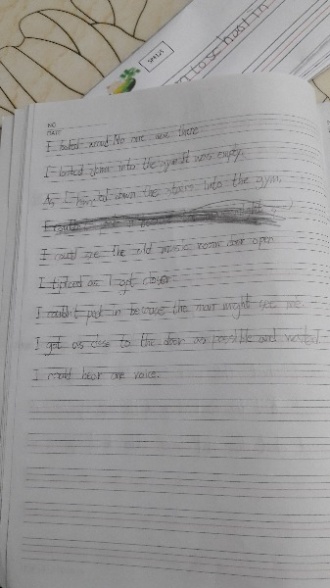 NO.
DATE
I looked around. No one was there
I looked down into the gym. It was empty.
As I down the stairs into the gym,
I could
I could see the old music room door open
I tiptoed as I got closer
I couldn't peek in because the man might see me.
I got as close to the door as possible and waited.
I could hear one voice.